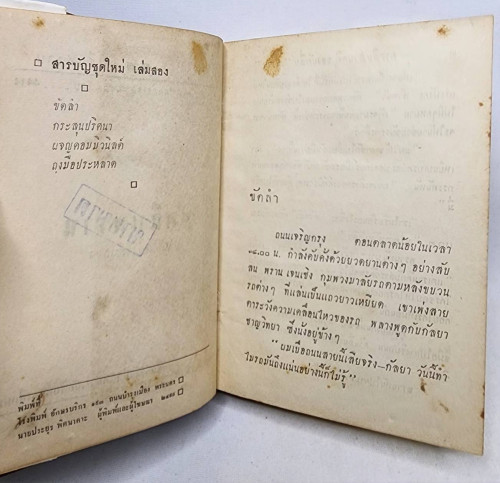 สารบัญชุดใหม่ เล่มสอง
ขัดลำ
กระสุนปริศนา
ผจญคอมมิวนิสต์
ถุงมือประหลาด
พิมพ์ที่
โรงพิมพ์ อักษรบริการ ถนนบำรุงเมือง พระนคร
นายประยูร พิศนาคะ ผู้พิมพ์และผู้โฆษณา
ขัดลำ
ถนนเจริญกรุง ตอนตลาดน้อยในเวลา
๑๘.๐๐ น. กำลังคับคั่งด้วยยวดยานต่างๆ อย่างสับ
สน พราน เจนเชิง กุมพวงมาลัยรถตามหลังขบวน
รถต่างๆ ที่แล่นเป็นแถวยาวเหยียด เขาเพ่งสาย
ตาระวังความเคลื่อนไหวของรถ พลางพูดกับกัลยา
ชาญวิทยา ซึ่งนั่งอยู่ข้างๆ
"ผมเบื่อถนนสายนี้เสียจริง—กัลยา วันนี้ทำ
ไมรถมันถึงแน่นอย่างนี้ก็ไม่รู้"